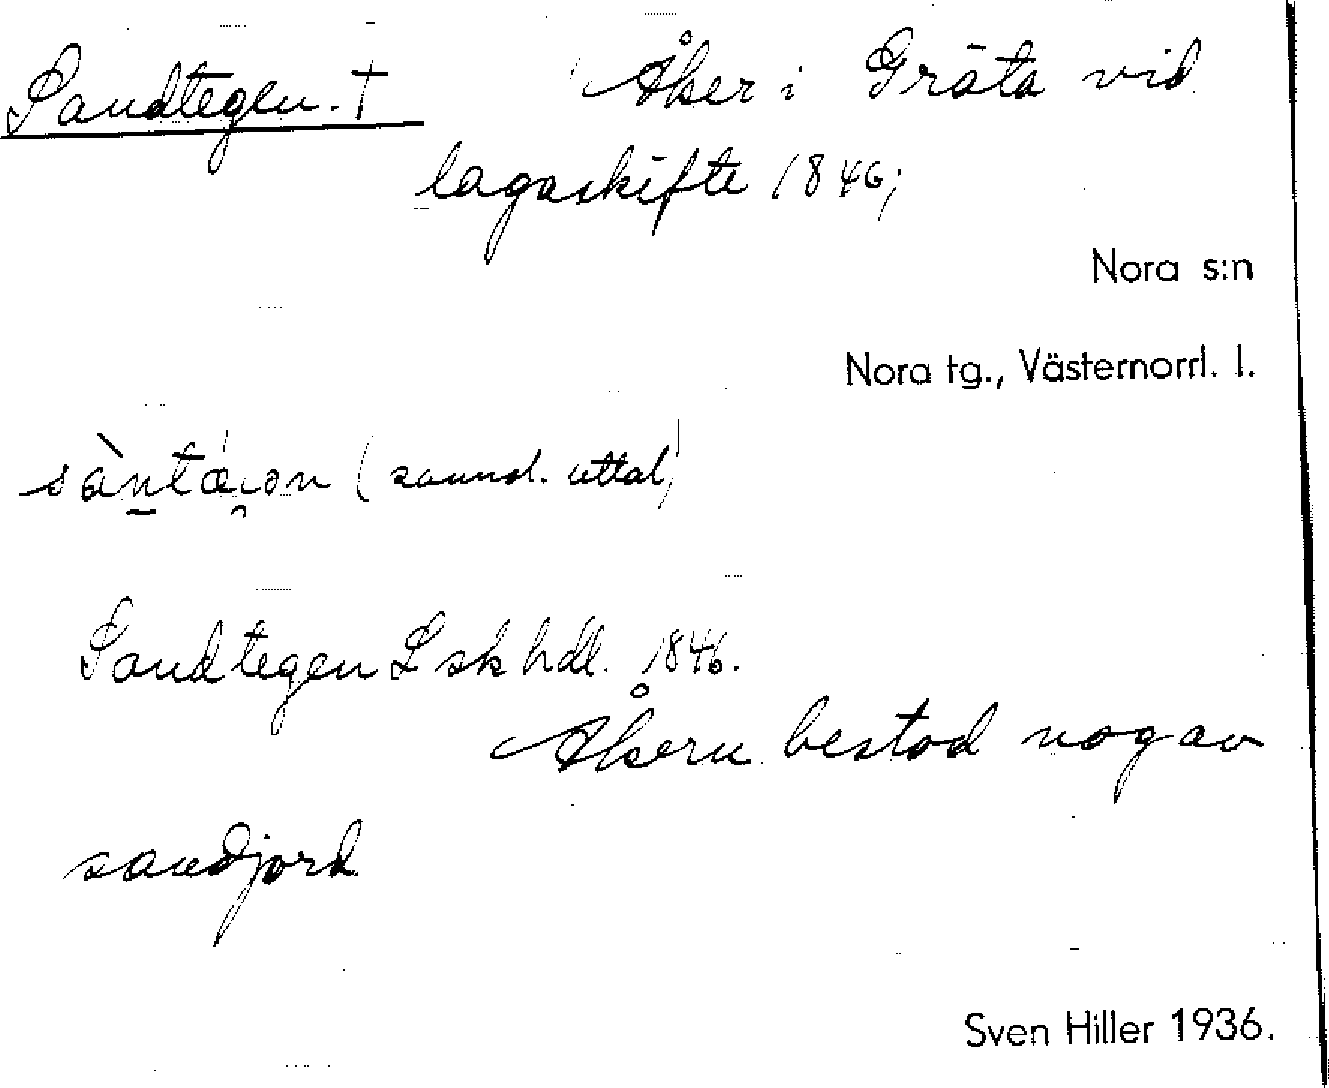 Sandtegen. † Åker i Gräta vid
lagaskifte 1846;
Nora s:n
Nora tg., Västernorrl. l.
(sannol. uttal)
Sandtegen Lsk hdl. 1846.
Åkern bestod nog av
sandjord
Sven Hiller 1936.